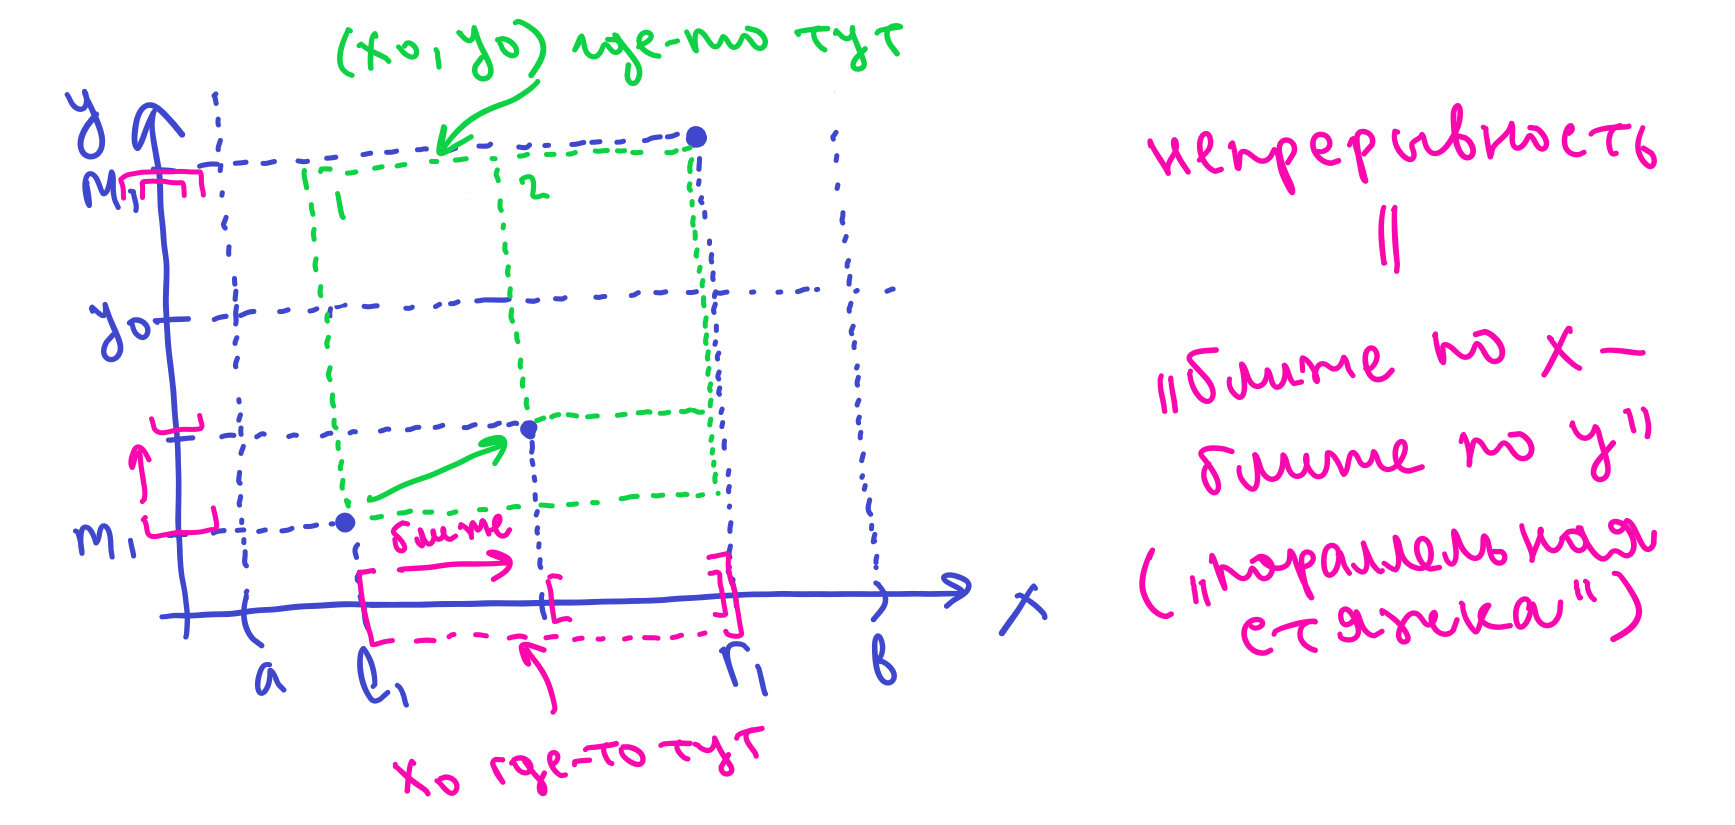 (x₀, y₀) где-то тут
y
M₁
1
2
y₀
m₁
ближе
x
a
l₁
r₁
в
x₀ где-то тут
непрерывность
||
"ближе по x –
ближе по y"
("параллельная
стяжка")